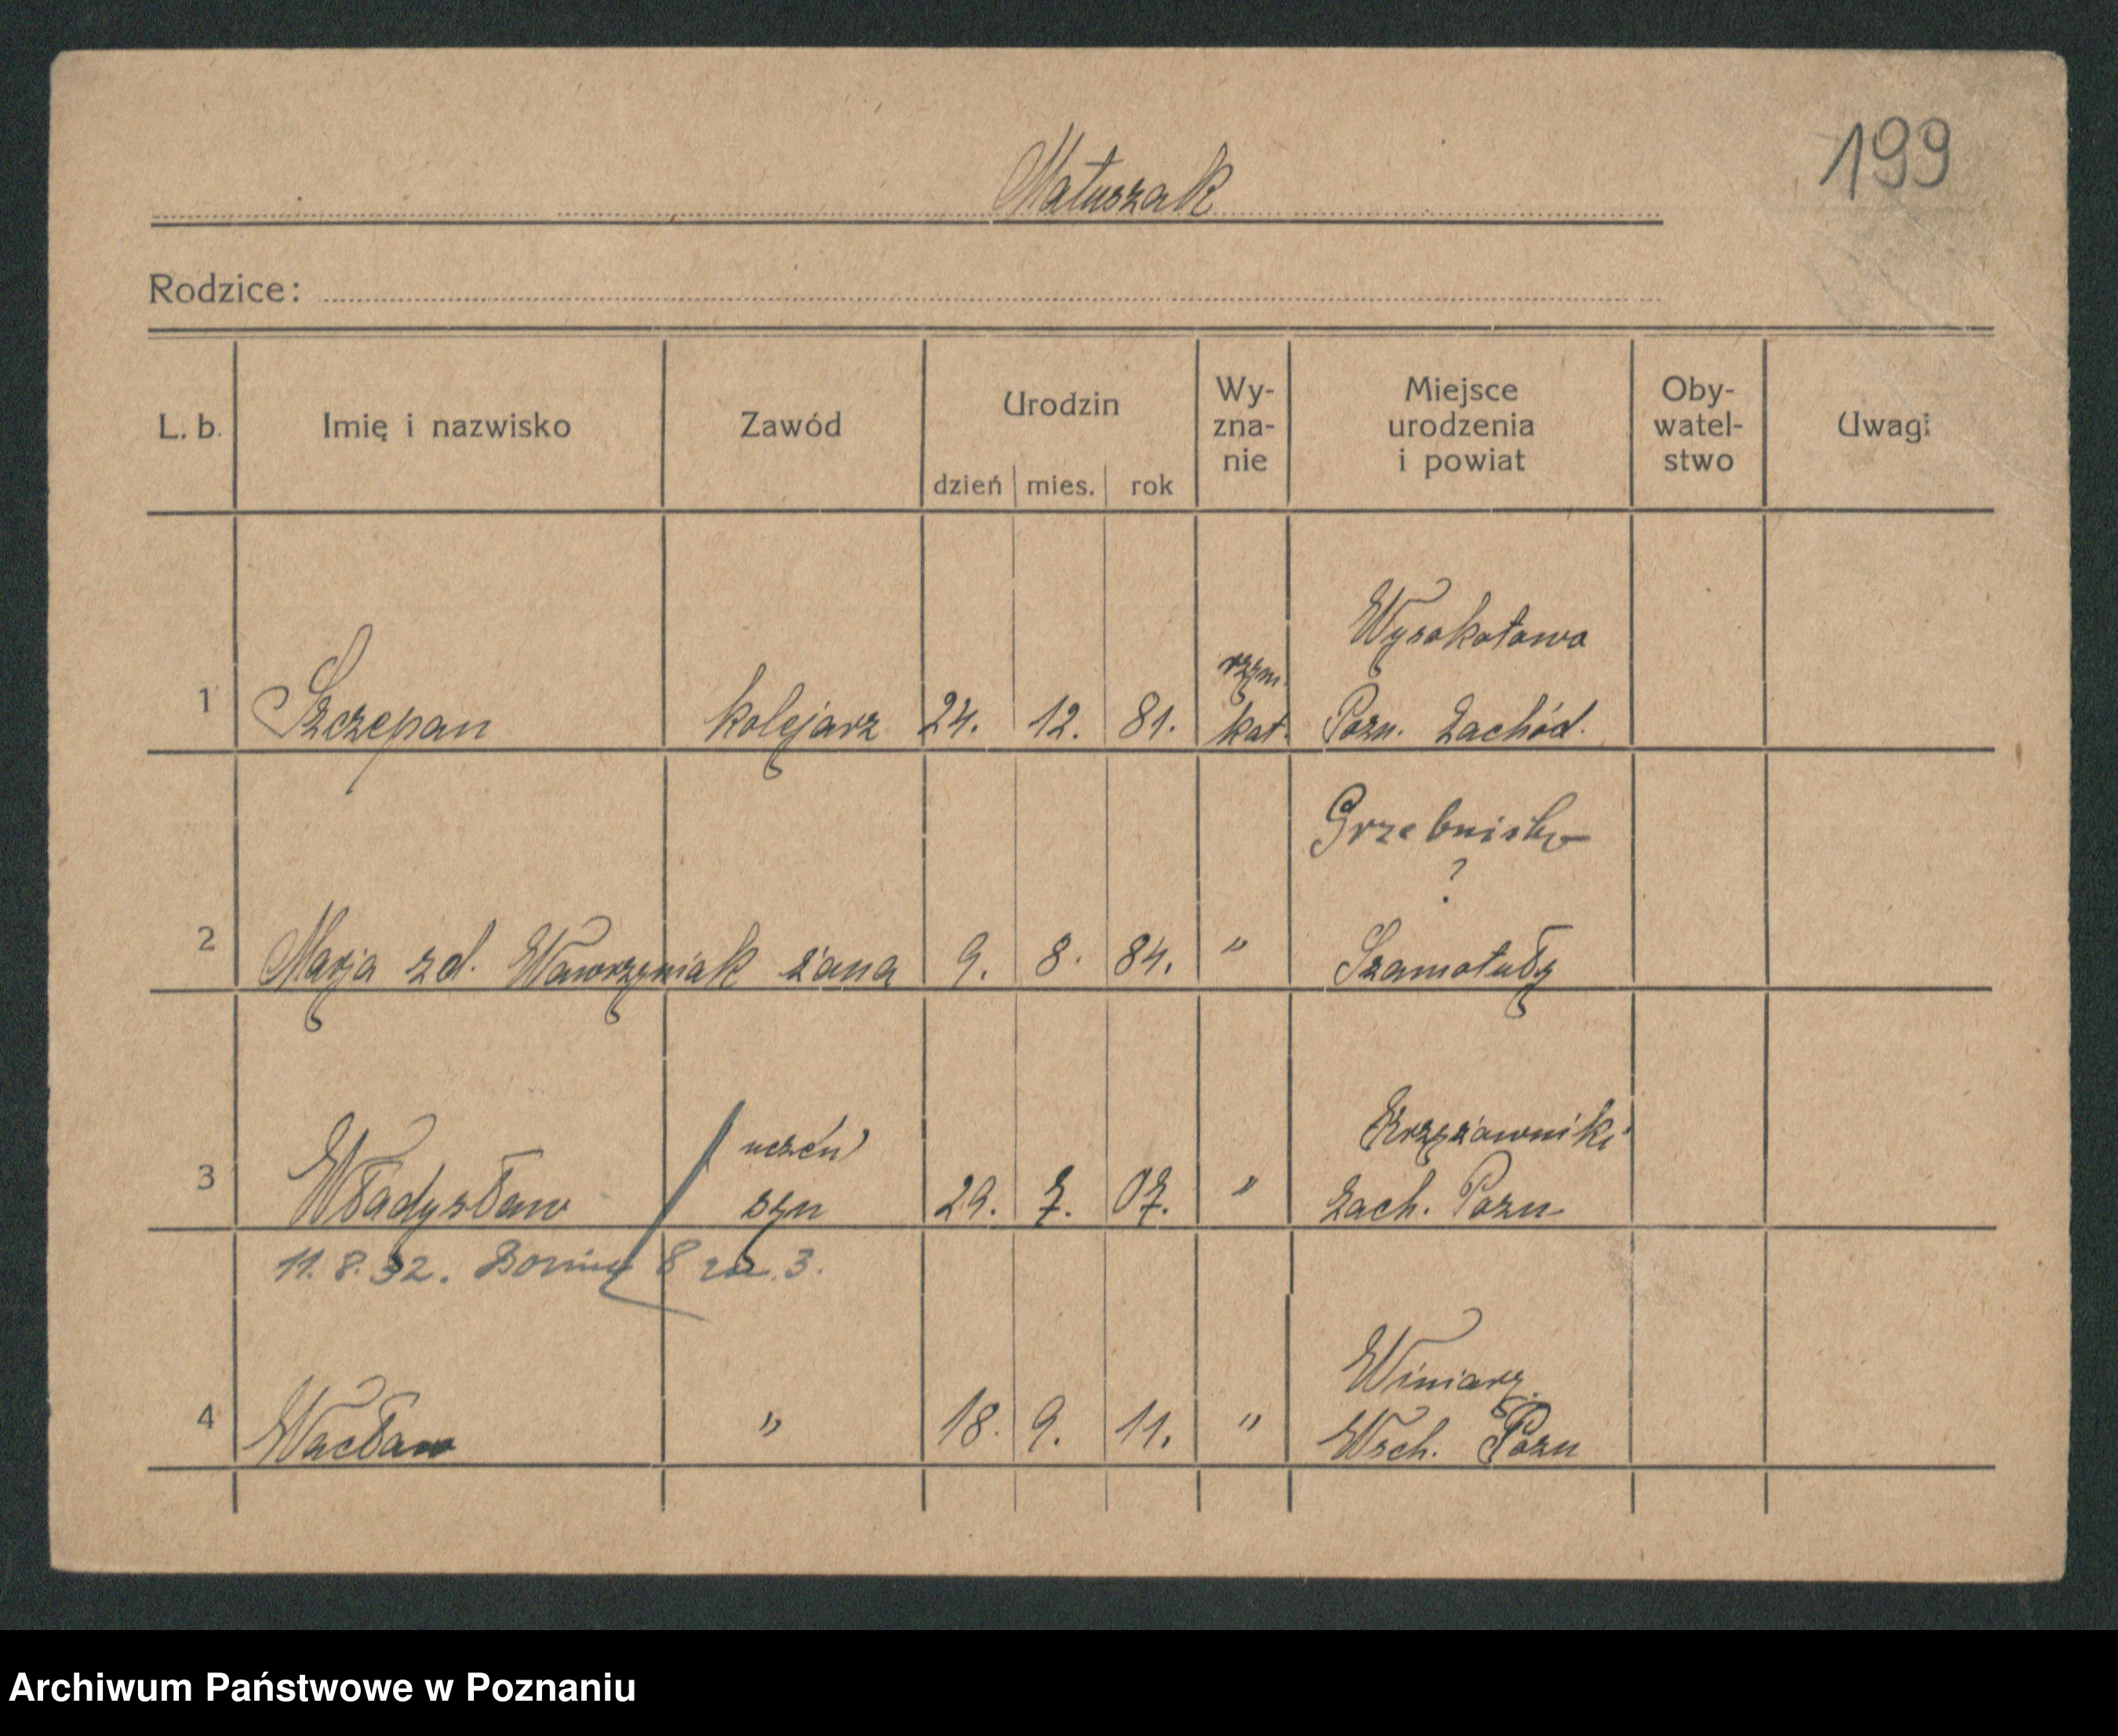 199
Matuszak
Rodzice:
L. b. Imię i nazwisko Zawód Urodzin dzień mies. rok Wy-zna-nie Miejsce urodzenia i powiat Oby-watel-stwo Uwagi
Wysokotowo
rzym.
1 Szczepan kolejarz 24. 12. 81. kat. Pozn. Zachód.
Grzebnisko
?
2 Marja zd. Wawrzyniak żona 9. 8. 84. " Szamotuły
uczeń Krzyżowniki
3 Władysław syn 29. 7. 07. " Zach. Pozn
11. 8. 32. 8 m. 3.
Winiary
4 Wacław " 18. 9. 11. " Wsch. Pozn
Archiwum Państwowe w Poznaniu